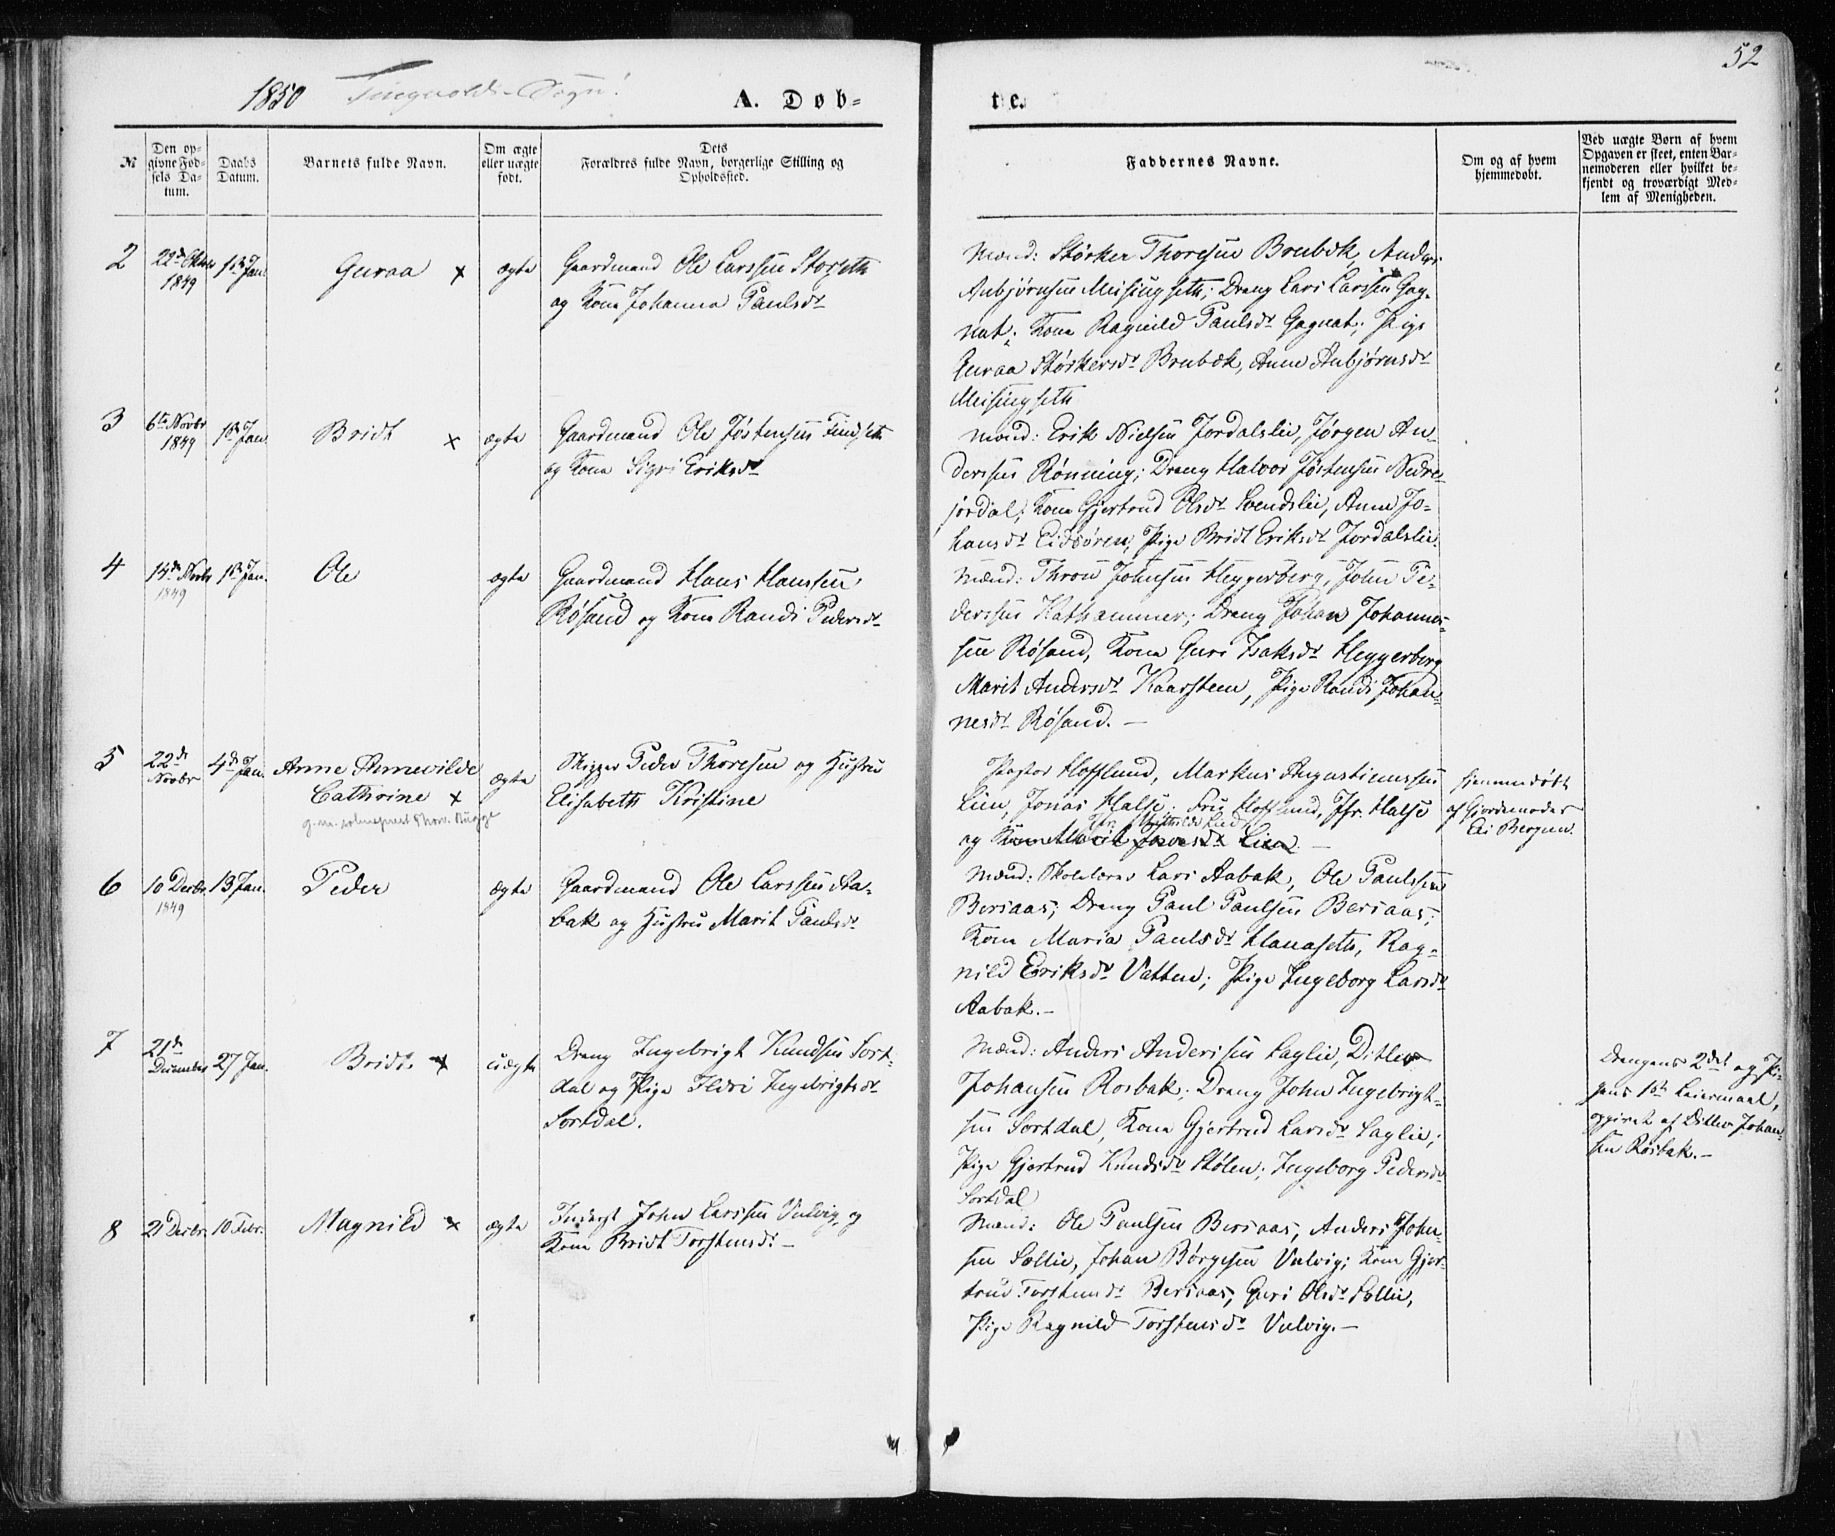 52
1850 Tingvolds Sogn.
A. Døb-
te.
№
Den op-
givne Fød-
sels Da-
tum.
Daabs
Datum.
Barnets fulde Navn.
Om ægte
eller uægte
født.
Dets
Forældres fulde Navn, borgerlige Stilling og
Opholdssted.
Faddernes Navne.
Om og af hvem
hjemmedøbt.
Ved uægte Børn af hvem
Opgaven er skeet, enten Bar-
nemoderen eller hvilket be-
kjendt og troværdigt Med-
lem af Menigheden.
2
1849
1ste Jan.
Guraa x
ægte
Gaardmand Ole Larssen Storseth
og Kone Johanna Paulsdr
Mænd: Størker Thoresen Brubæk, Anders
Anbjørnsen Meisingseth; Dreng Lars Larssen Gag-
nat; Kone Ragnild Paulsdr Gagnat; Pige
Guraa Størkersdr Brubæk, Anne Anbjørnsdr
Meisingseth
3
6te Novbr
1849
1ste Jan.
Bridt x
ægte
Gaardmand Ole Jøstensen
og Kone Sigri Eriksdr
Mænd: Erik Nielsen Jordalslie, Jørgen An-
derssen Rønning; Dreng Halvor Jøstensen Nedre-
jordal; Kone Gjertrud Olsdr Svendslie, Anne Jo-
hansdr Eidsøren; Pige Bridt Eriksdr Jordalslie.
4
14de Novbr
1849
1ste Jan.
Ole
ægte
Gaardmand Hans Hanssen
Røsand og Kone Randi Pedersdr
Mænd: Thron Johnsen Heggerberg, John Pe-
derssen Kathammer; Dreng Johan Johannes-
sen Røsand, Kone Guri Isaksdr Heggerberg
Marit Andersdr Kaarstein, Pige Randi Johan-
nesdr Røsand. —
5
22de
Novbr
4de Jan.
Anne Annevilde
Cathrine x
ægte
Skipper Peder Thoresen og Hustru
Elisabeth Kristine
Pastor Hofflund, Markus Angustinussen
Lien, Jonas Halse; Fru Hofflund, Jfr. Halse
Jfr. Mathilde Lied
og Kone Marit Jonasdr Lien. —
hjemmedøbt
af Gjordemoder
Eli Bergem.
6
10 Decbr.
1849
13 Jan.
Peder
ægte
Gaardmand Ole Larssen Aa-
bak og Hustru Marit Paulsdr
Mænd: Skolelærer Lars Aabak, Ole Paulssen
Bersaas; Dreng Paul Paulsen Bersaas;
Kone Maria Paulsdr Hanaseth, Rag-
nild Eriksdr Vatten; Pige Ingeborg Larsdr
Aabak. —
7
21de
December
27 Jan.
Bridt x
uægte
Dreng Ingebrigt Knudsen Sort-
dal og Pige Ildri Ingebrigtsdr
Sortdal.
Mænd: Anders Anderssen Saglie, Ditlev
Johansen Rosbak; Dreng John Ingebrigt-
sen Sortdal, Kone Gjertrud Larsdr Saglie;
Pige Gjertrud Knudsdr Stølen; Ingeborg Pedersdr
Sortdal
Drengens 2det og Pi-
gens 1ste Leiermaal,
opgivet af Ditlev Johan-
sen Rosbak. —
8
21 Decbr.
10 Febr.
Magnild x
ægte
Inderst John Larssen Vulvig og
Kone Bridt Torstensdr —
Mænd: Ole Paulsen Bersaas, Anders John-
sen Sollie, Johan Børgesen Vulvig; Kone Gjer-
trud Torstensdr Bersaas, Guri Olsdr Sollie,
Pige Ragnild Torstensdr Vulvig. —